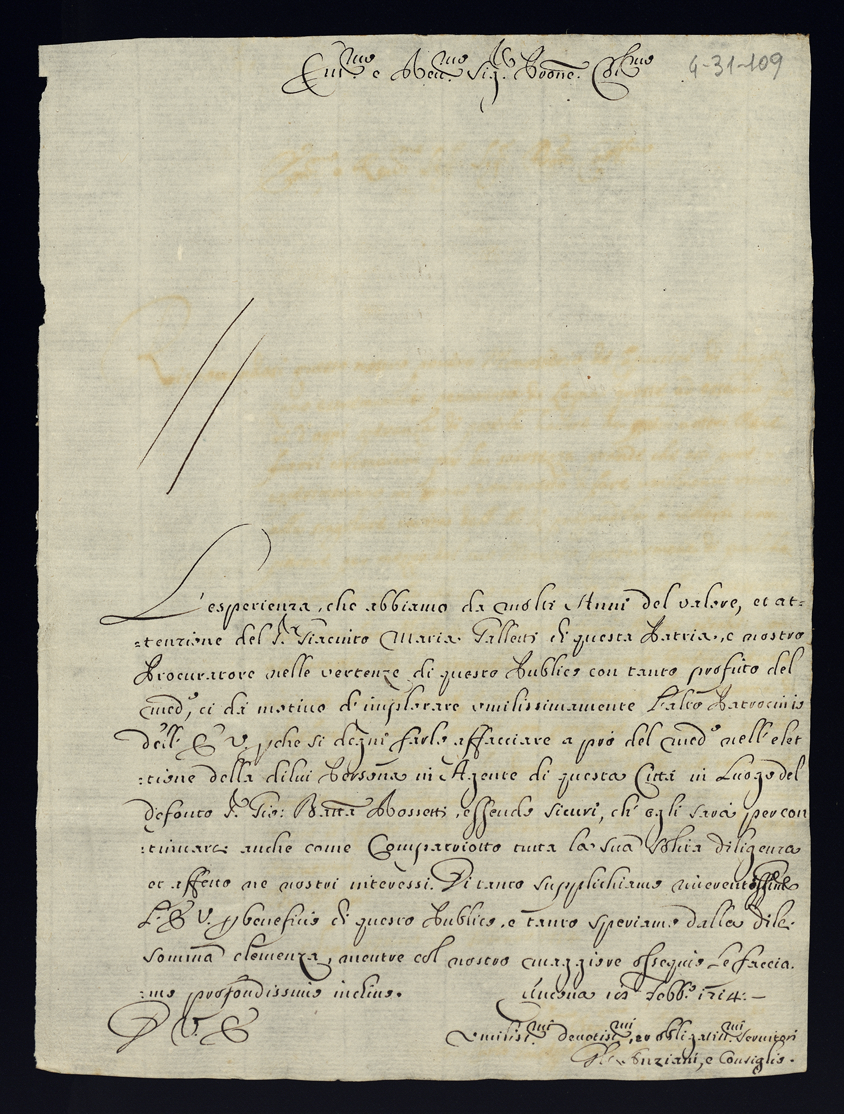 Em.mo e Rev.mo Sig.r Prōne Col.mo
4-31-109
L'esperienza, che abbiamo da molti Anni del valore, et at=
=tenzione del S.r Giacinto Maria Galletti di questa Patria, e nostro
Procuratore nelle vertenze di questo Publico con tanto profitto del
med.o, ci dà motivo d'implorare umilissimamente l'alto Patrocinio
dell' E. V., che si degni farlo affacciare a prò del med.o nell'elet
=tione della dilui Persona in Agente di questa Città in Luogo del
defonto S.r Gio: Batta Rossetti, essendo sicuri, ch'egli sarà per con
=tinuare anche come Compatriotto tutta la sua solita diligenza
et affetto ne nostri interessi. Di tanto supplichiamo
L' E. V. p beneficio di questo Publico, e tanto speriamo dalla di lei
somma clemenza, mentre col nostro maggiore ossequio Le faccia
=mo profondissimo inchino.
Ancona Febb.o 1714.
D. V. E.
Umilis.mi Devotis.mi, et obligatis.mi Servitori
Gl'Anziani, e Consiglio.